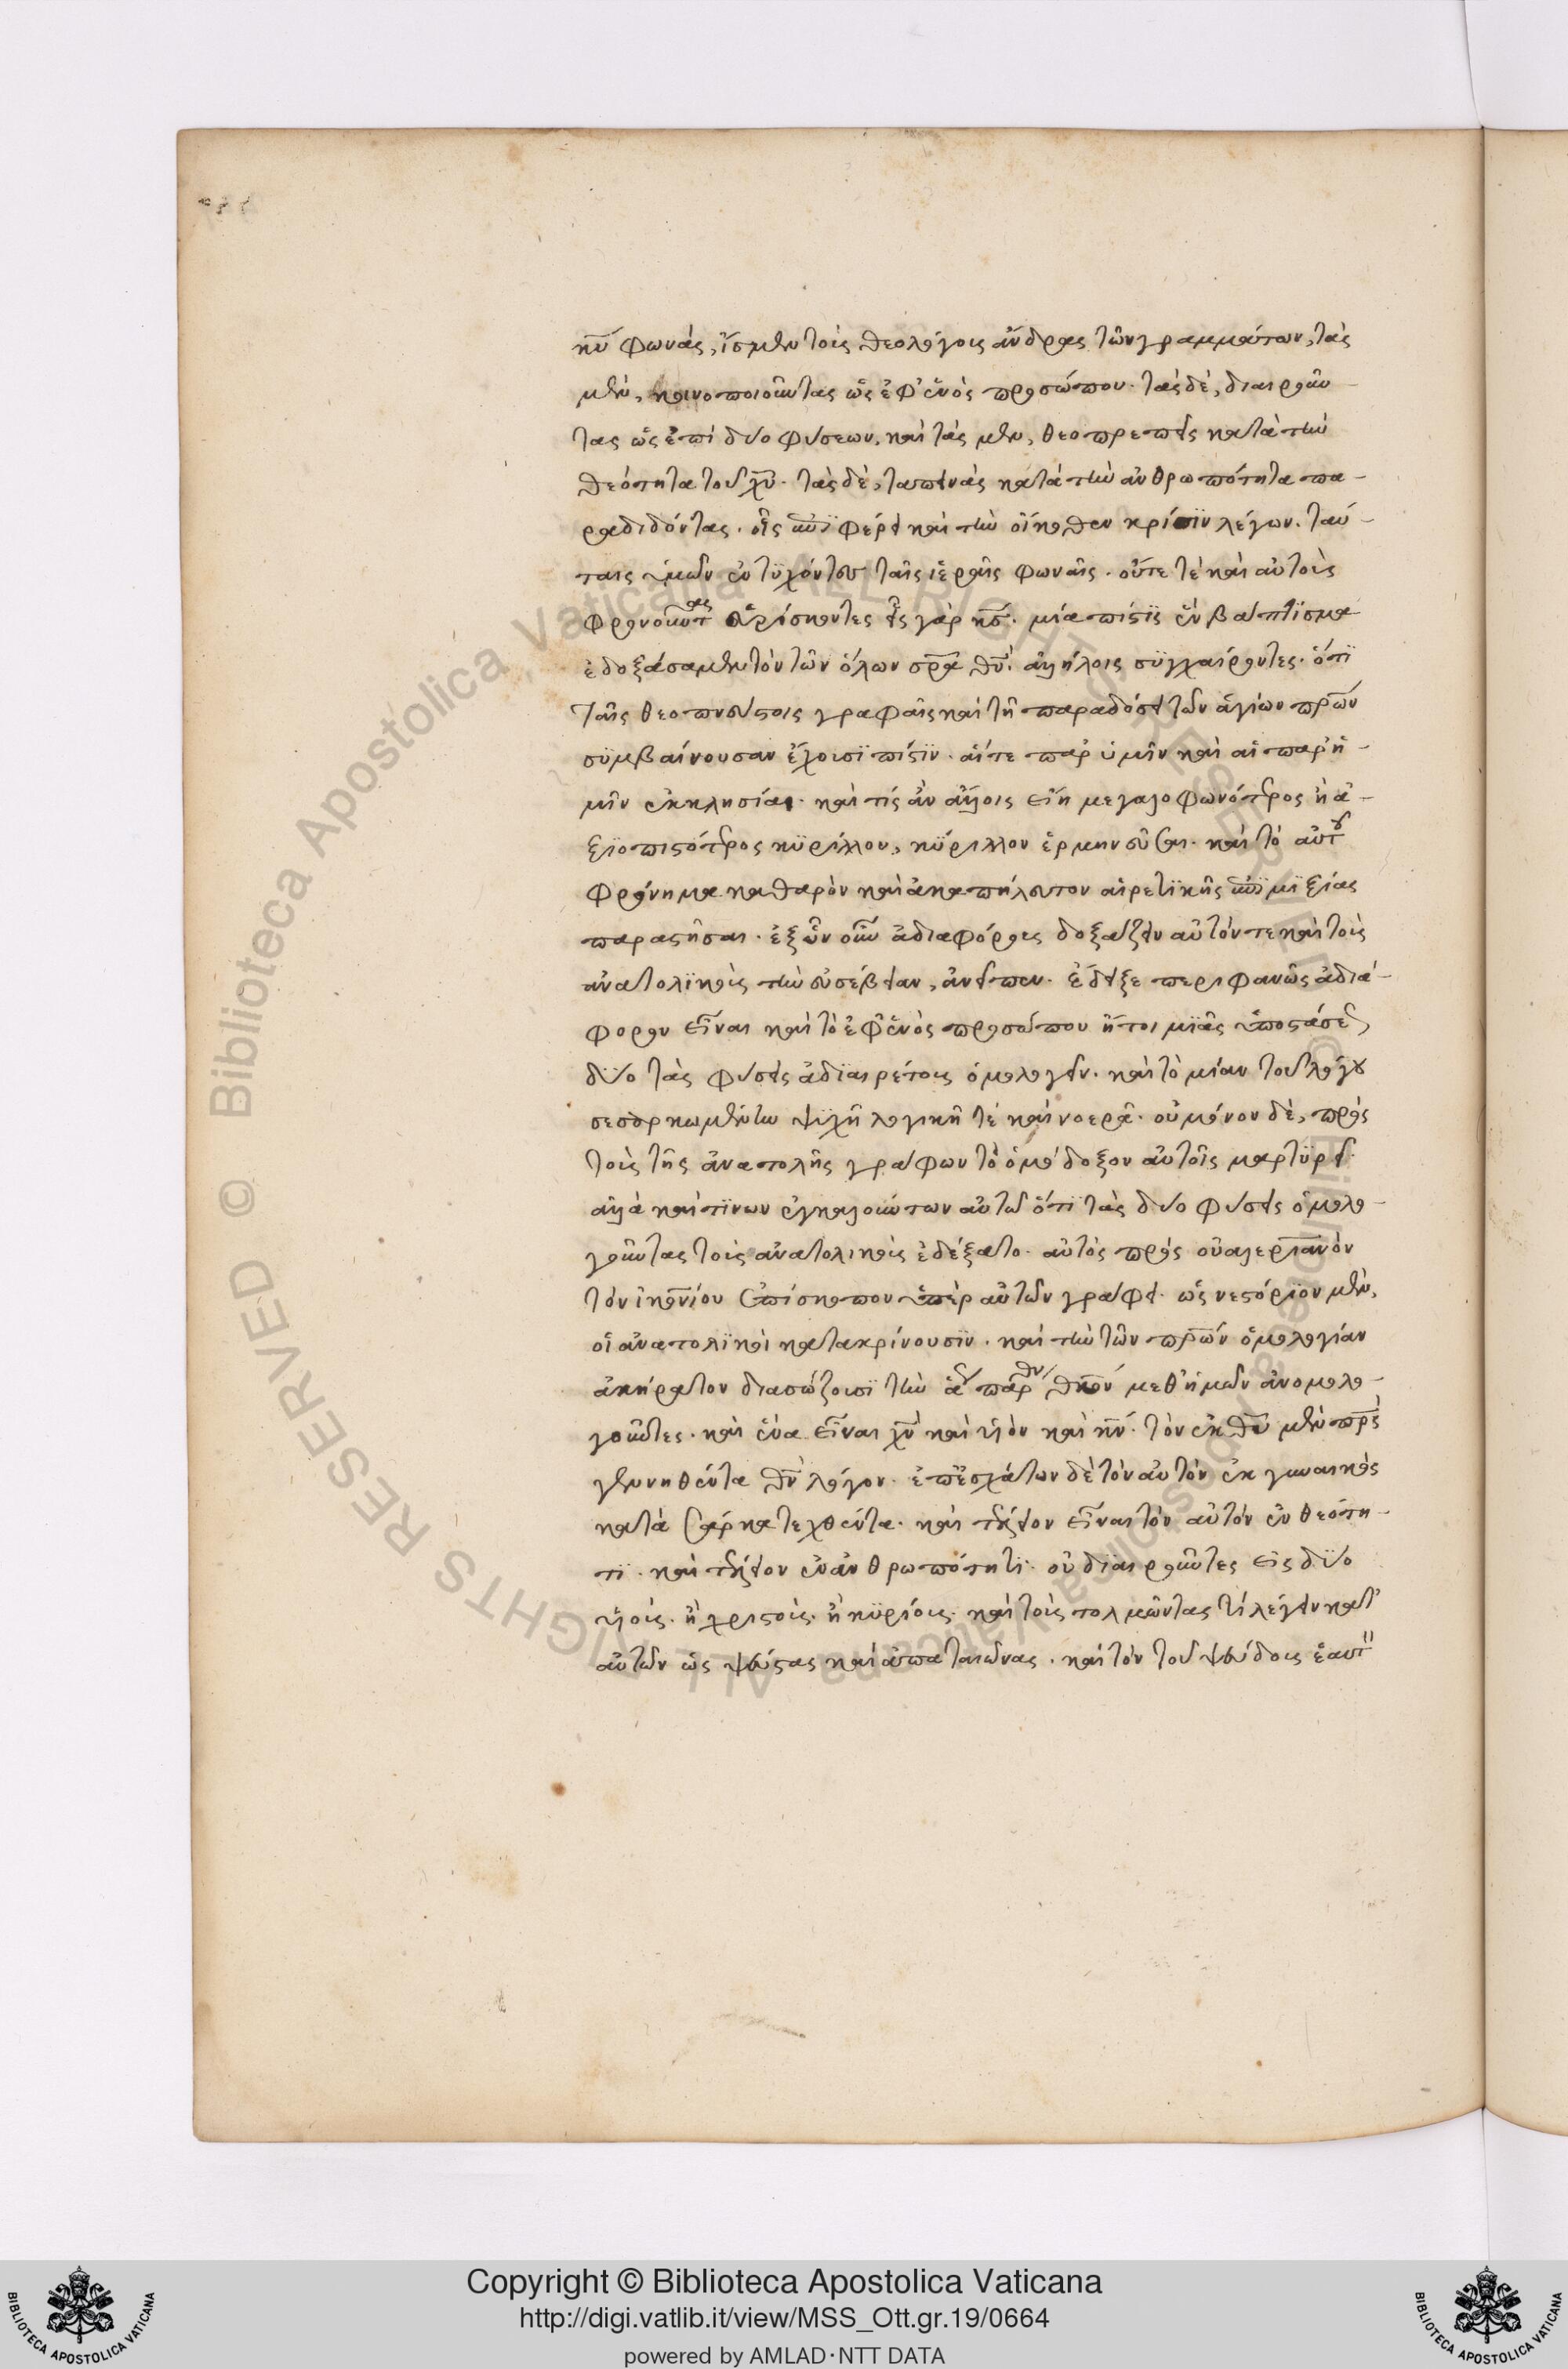 κυ φωνάς, ἴσμεν τοὺς θεολόγους ἄνδρας τῶν γραμμάτων, τὰς
μὲν, κοινοποιοῦντας ὡς ἐφ' ἑνὸς προσώπου· τὰς δὲ, διαιροῦν
τας ὡς ἐπὶ δύο φύσεων. καὶ τὰς μὲν, θεοπρεπεῖς κατὰ τὴν
θεότητα τοῦ χυ· τὰς δὲ, ταπεινὰς κατὰ τὴν ἀνθρωπότητα πα-
ραδιδόντας. οἷς φέρει καὶ τὴν οἴκοθεν κρίσϊν λέγων. ταύ-
ταις ὑμῶν ἐντϋχόντες ταῖς ἱεραῖς φωναῖς. οὕτε τὲ καὶ αὐτοὺς
φρονοῦντας εὑρίσκοντες εἷς γὰρ κς· μία πίστϊς ἓν βάπτϊσμα
ἐδοξάσαμεν τὸν τῶν ὅλων σρα θν· ἀλλήλοις σϋγχαίροντες· ὅτϊ
ταῖς θεοπνεύστοις γραφαῖς καὶ τῇ παραδόσει τῶν ἁγίων πρων
σϋμβαίνουσαν ἔχουσϊ πίστϊν. αἵτε παρ' ὑμῖν καὶ αἱ παρ' ἡ-
μῖν ἐκκλησίαι· καὶ τίς ἂν ἄλλοις εἴη μεγαλοφωνότερος ἢ ἀ-
ξϊοπιστότερος κϋρίλλου, κϋριλλον ἑρμηνεῦσαι· καὶ τὸ αὐτοῦ
φρόνημα καθαρὸν καὶ ἀκαπήλευτον αἱρετϊκῆς μϊξίας
παραστῆσαι. ἐξ ὧν οὖν ἀδιαφόρως δοξάζειν αὐτόν τε καὶ τοὺς
ἀνατολϊκοὺς τὴν εὐσέβειαν, ἀνεῖπεν· ἔδειξε περιφανῶς ἀδιά-
φορον εἶναι καὶ τὸ ἐφ' ἑνὸς προσώπου ἤτοι μϊᾶς ὑποστάσεως
δϋο τὰς φύσεις ἀδϊαιρέτους ὁμολογεῖν· καὶ τὸ μίαν τοῦ λόγου
σεσαρκωμένην ψϋχῇ λογικῇ τὲ καὶ νοερᾷ. οὐ μόνον δὲ, πρὸς
τοὺς τῆς ἀνατολῆς γράφων τὸ ὁμόδοξον αὐτοῖς μαρτϋρεῖ·
ἀλλὰ καὶ τϊνων ἐγκαλούντων αὐτῷ ὅτϊ τὰς δύο φύσεις ὁμολο-
γοῦντας τοὺς ἀνατολικοὺς ἐδέξατο. αὐτὸς πρὸς οὐαλεριανὸν
τὸν ἰκονίου ἐπίσκοπον ὑπὲρ αὐτῶν γράφει. ὡς νεστόρϊον μὲν,
οἱ ἀνατολϊκοὶ κατακρίνουσϊν. καὶ τὴν τῶν πρων ὁμολογίαν
ἀκήρατον διασώζουσϊ τὴν παρθν θκον μεθ' ἡμῶν ἀνομολο-
γοῦντες. καὶ ἕνα εἶναι χν καὶ υἱὸν καὶ κν· τὸν ἐκ θυ μὲν πρς
γεννηθέντα θν λόγον· ἐπ' ἐσχάτων δὲ τὸν αὐτὸν ἐκ γυναικὸς
κατὰ σάρκα τεχθέντα· καὶ τέλειον εἶναι τὸν αὐτὸν ἐν θεότη-
τϊ· καὶ τέλειον ἐν ἀνθρωπότητϊ· οὐ δϊαιροῦντες εἰς δϋο
υἱούς· ἢ χριστοὺς· ἢ κϋρίους· καὶ τοὺς τολμῶντας τὶ λέγειν κατ'
αὐτῶν ὡς ψεύστας καὶ ἀπατεῶνας. καὶ τὸν τοῦ ψεύδους ἑαυτ
Copyright © Biblioteca Apostolica Vaticana
http://digi.vatlib.it/view/MSS_Ott.gr.19/0664
powered by AMLAD·NTT DATA